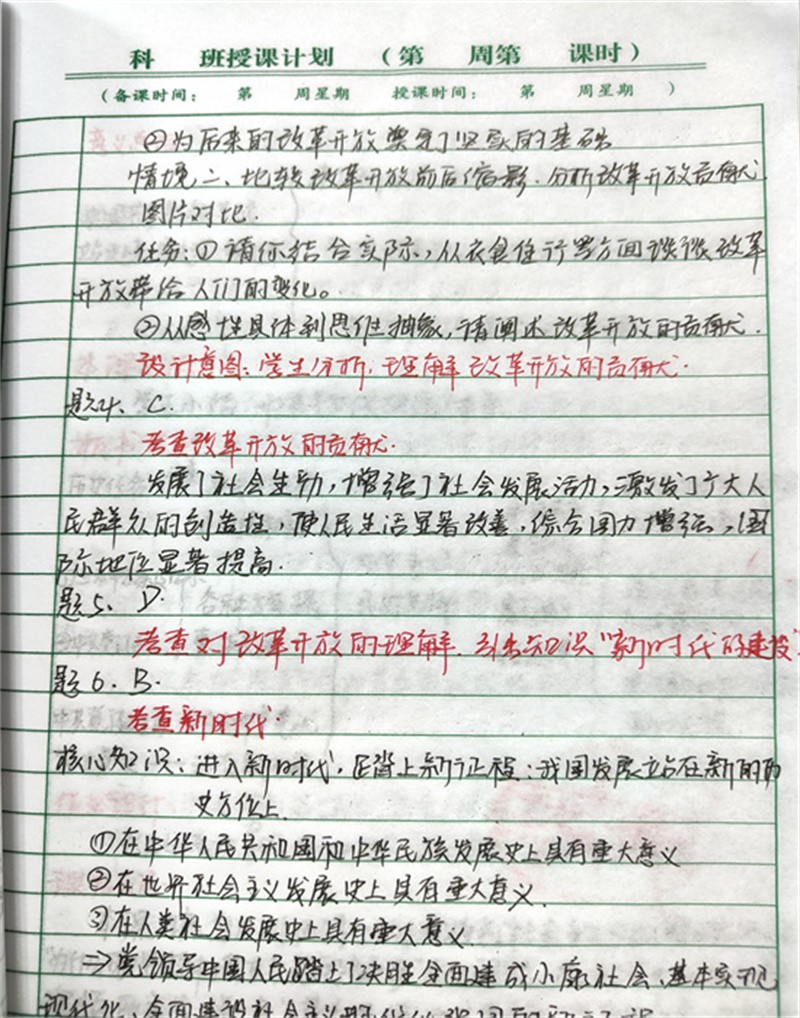 科 班授课计划 （第 周第 课时）
（备课时间： 第 周星期 授课时间： 第 周星期 ）
②为后来的改革开放奠定了坚实的基础
情境二、比较改革开放前后缩影，分析改革开放贡献
图片对比.
任务：①请你结合实际，从衣食住行等方面谈谈改革
开放带给人们的变化。
②从感性具体到思维抽象，请阐述改革开放的贡献.
设计意图：学生分析，理解改革开放的贡献.
题4、C.
考查改革开放的贡献.
发展了社会生动，增强了社会发展活力，激发了广大人
民群众的创造性，使人民生活显著改善，综合国力增强，国
际地位显著提高.
题5、D.
考查对改革开放的理解，引出知识“新时代的建设”
题6、B.
考查新时代.
核心知识：进入新时代，踏上新征程：我国发展站在新的历
史方位上.
①在中华人民共和国和中华民族发展史上具有重大意义
②在世界社会主义发展史上具有重大意义.
③在人类社会发展史上具有重大意义.
⇒党领导中国人民踏上了决胜全面建成小康社会、基本实现
现代化、全面建设社会主义现代化强国的新